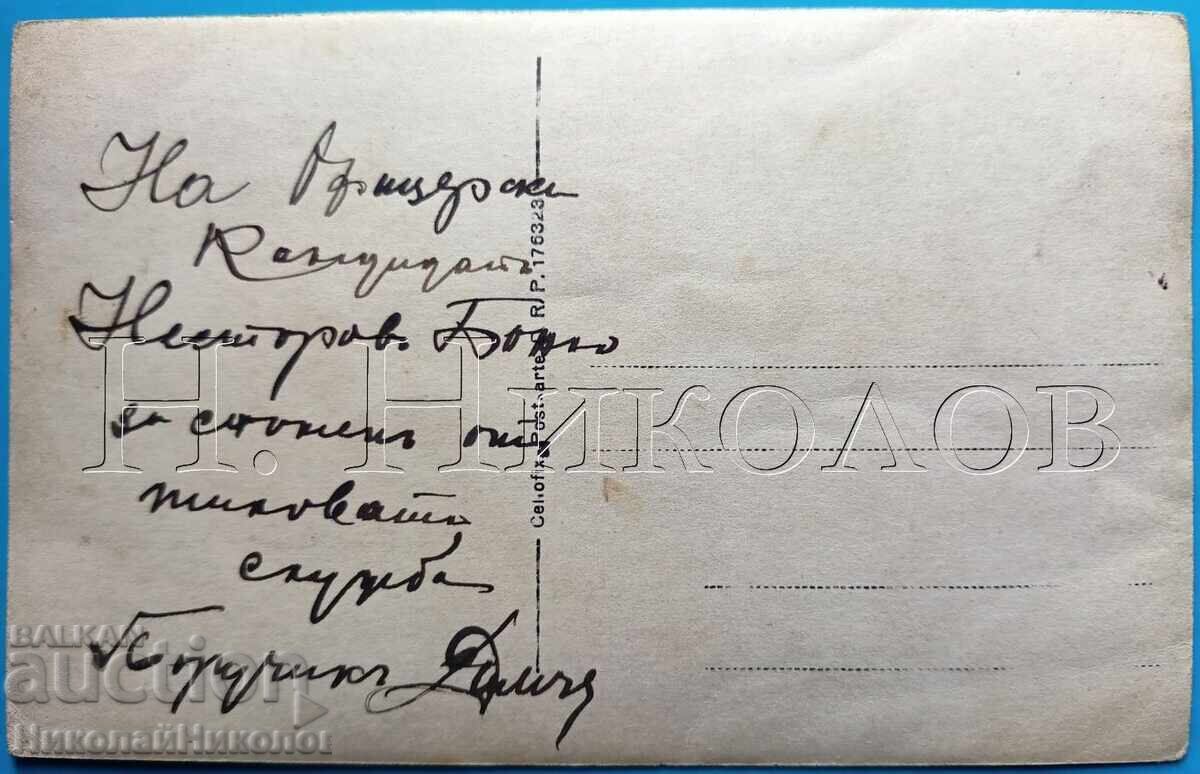 На Офицерски
Кандидатъ
Несторовъ Божко
за споменъ отъ
школската
служба
Поручикъ
Cellofix-Postkarte R. P. 176323
Н. Николов
BALKAN
auction
НиколайНиколов